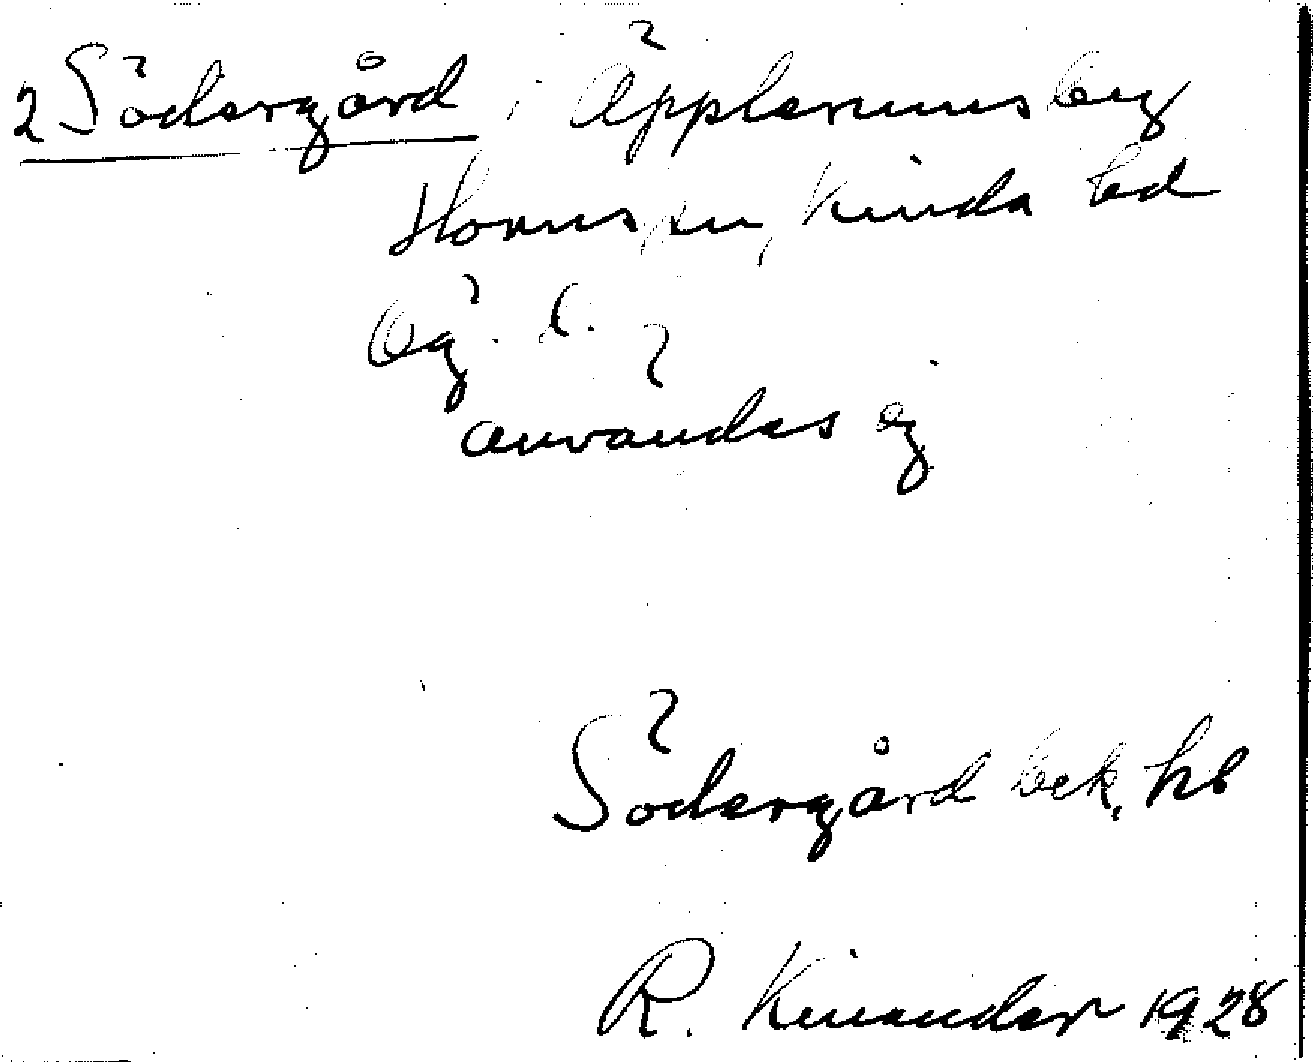 2 Södergård i Äpplerumsberg
Horns sn, Kinda hd
Ög. l.
användes ej
Södergård bek. hl
R. Kinander 1928